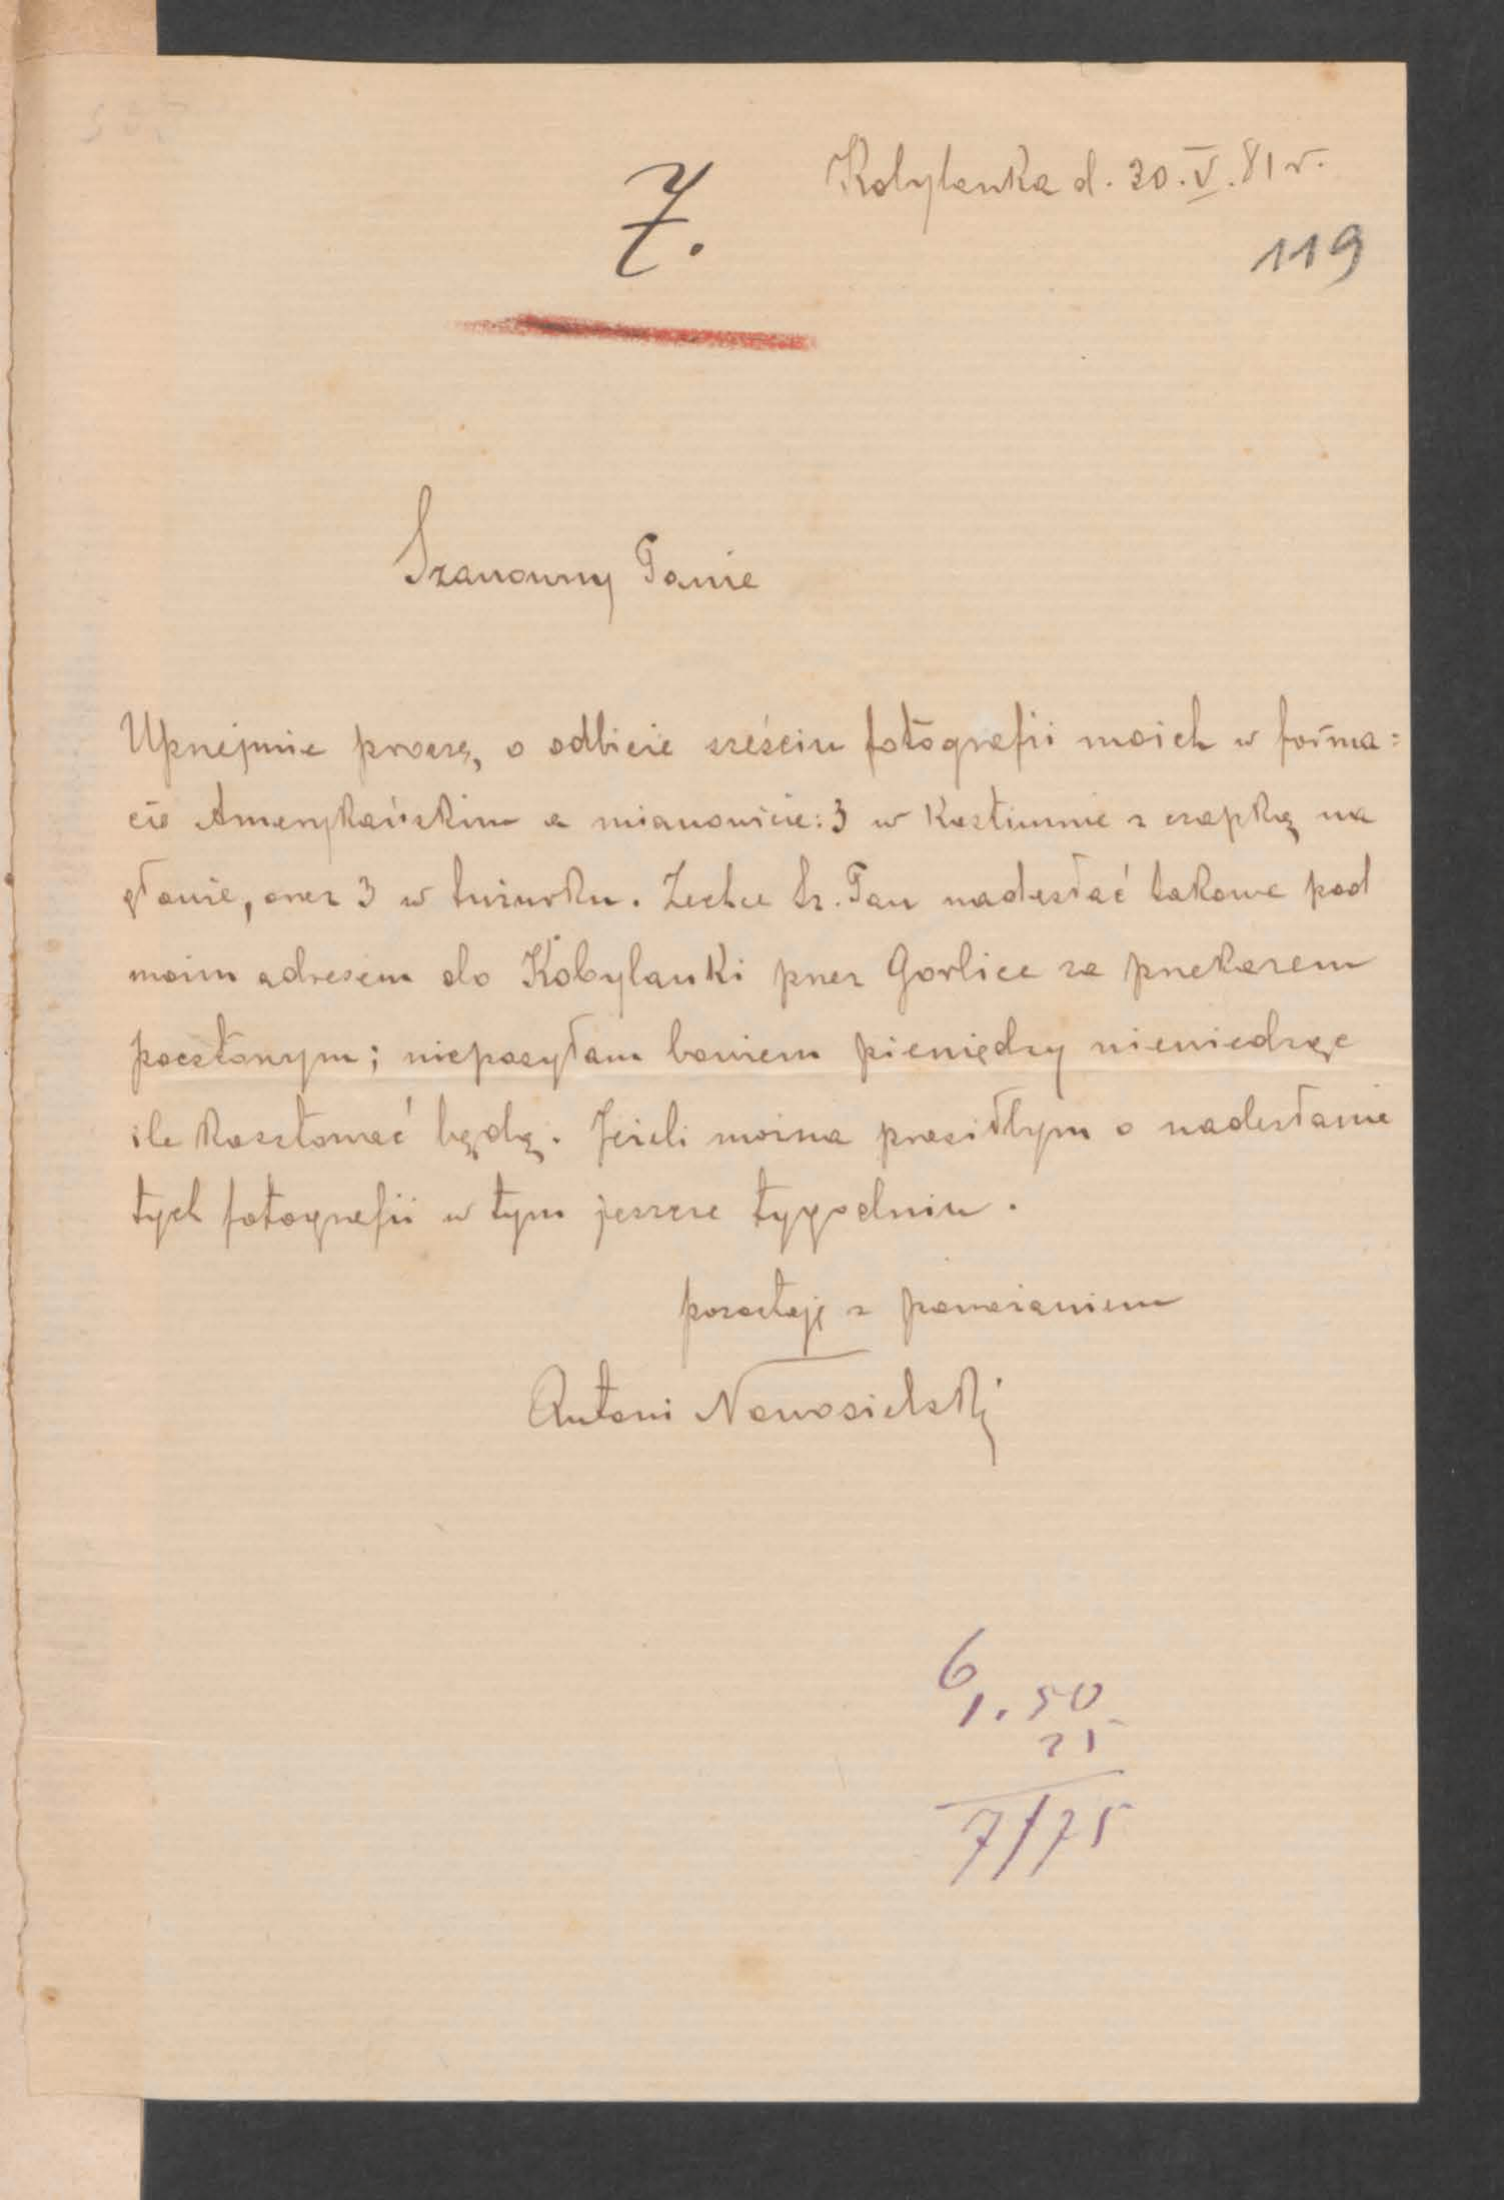 Kobylanka d. 30.V.81 r.
7.
119
Szanowny Panie
Uprzejmie proszę, o odbicie sześciu fotografii moich w forma=
cie Amerykańskim a mianowicie: 3 w Kostiumie z czapką na
głowie, oraz 3 w tużurku. Zechce Sz. Pan nadesłać takowe pod
moim adresem do Kobylanki przez Gorlice za przekazem
pocztowym; nieposyłam bowiem pieniędzy niewiedząc
ile kosztować będą. Jeżeli można prosiłbym o nadesłanie
tych fotografii w tym jeszcze tygodniu.
pozostaję z poważaniem
Antoni Nowosielski
6
1.50
25
7/75